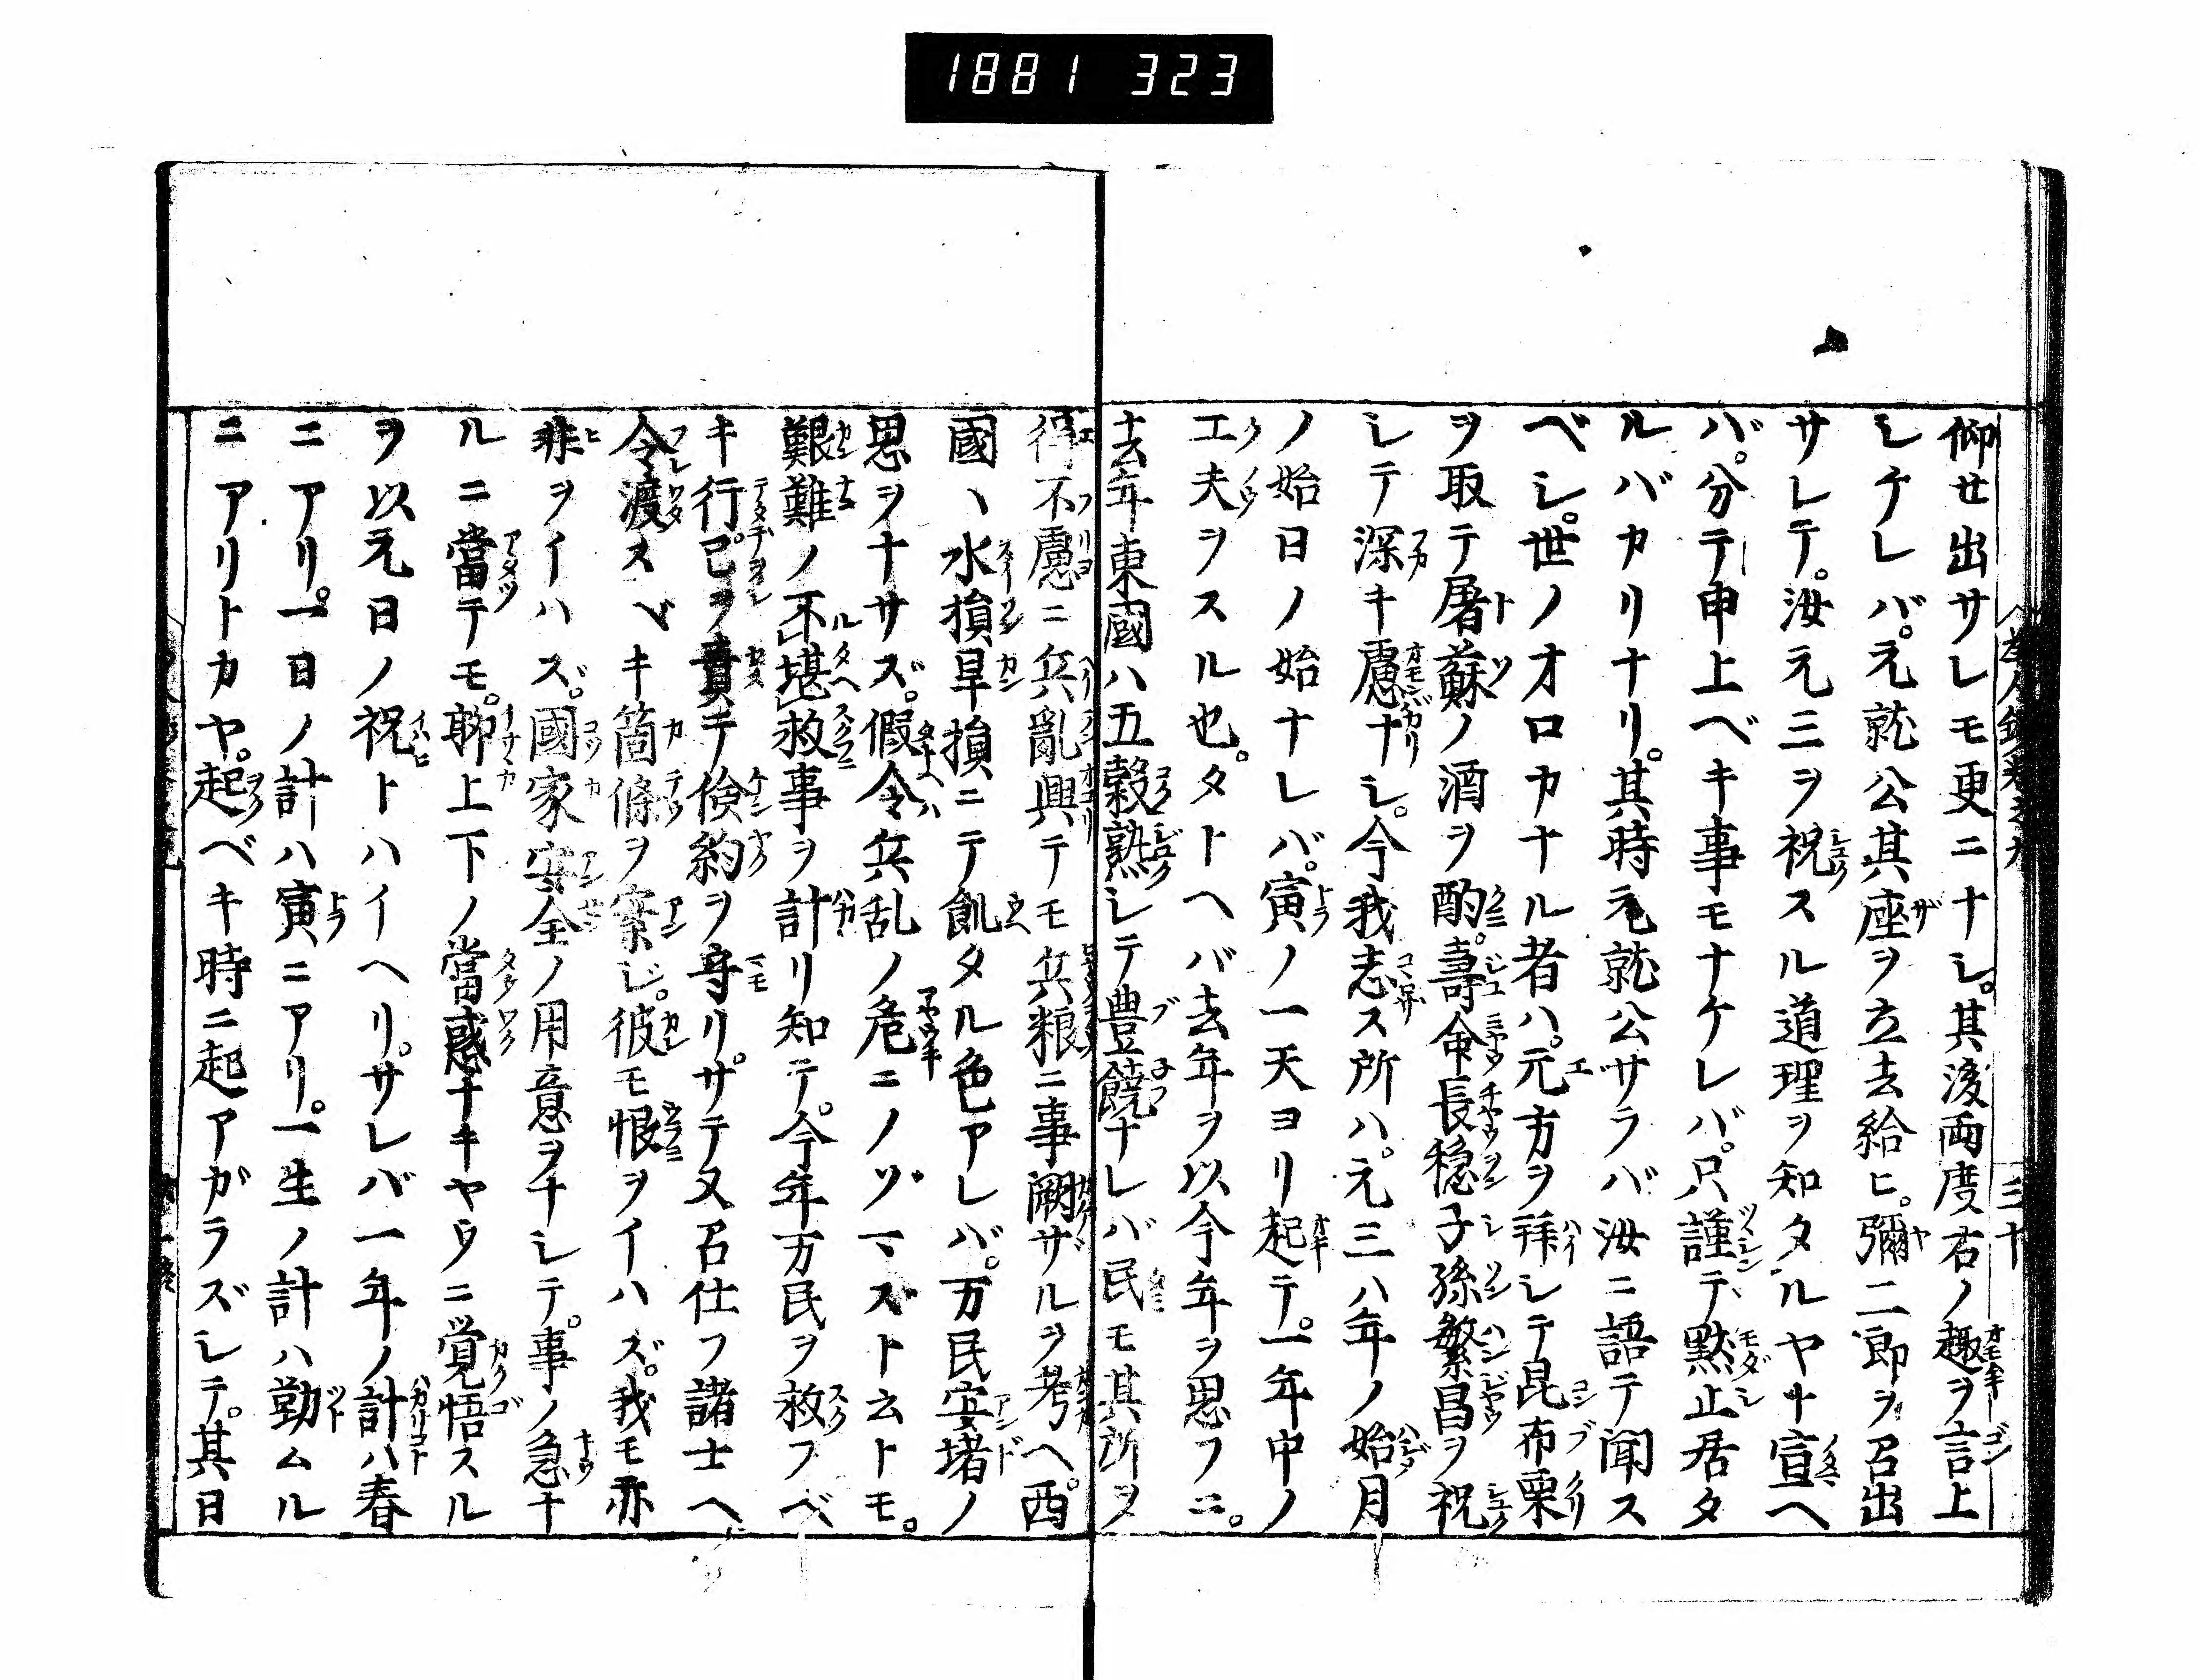 1881 323
仰せ出サレモ更ニナシ。其後両度右ノ趣ヲ言上
シケレバ。元就公其座ヲ立去給ヒ。彌二郎ヲ召出
サレテ。汝元三ヲ祝スル道理ヲ知タルヤト宣ヘ
バ。分テ申上ベキ事モナケレバ。只謹テ黙止居タ
ルバカリナリ。其時元就公サラバ汝ニ語テ聞ス
ベシ。世ノオロカナル者ハ。元方ヲ拜シテ昆布栗
ヲ取テ屠蘇ノ酒ヲ酌。壽命長穏子孫繁昌ヲ祝
シテ深キ慮ナシ。今我志ス所ハ。元三ハ年ノ始月
ノ始日ノ始ナレバ。寅ノ一天ヨリ起テ。一年中ノ
工夫ヲスル也。タトヘバ去年ヲ以今年ヲ思フニ。
去年東國ハ五穀熟シテ豊饒ナレバ民モ其所ヲ
得不慮ニ兵亂興テモ兵粮ニ事闕ザルヲ考ヘ。西
國ヽ水損旱損ニテ飢タル色アレバ。万民安堵ノ
思ヲナサズ。假令兵乱ノ危ニノゾマズト云トモ。
艱難ノ不堪救事ヲ計リ知テ。今年万民ヲ救フベ
キ行己ヲ責テ倹約ヲ守リ。サテ又召仕フ諸士ヘ
令渡スベキ箇條ヲ案ジ。彼モ恨ヲイハズ。我モ亦
非ヲイハズ。國家安全ノ用意ヲナシテ。事ノ急ナ
ルニ當テモ。聊上下ノ當惑ナキヤウニ覚悟スル
ヲ以元日ノ祝トハイヘリ。サレバ一年ノ計ハ春
ニアリ。一日ノ計ハ寅ニアリ。一生ノ計ハ勤ムル
ニアリトカヤ。起ベキ時ニ起アガラズシテ。其日